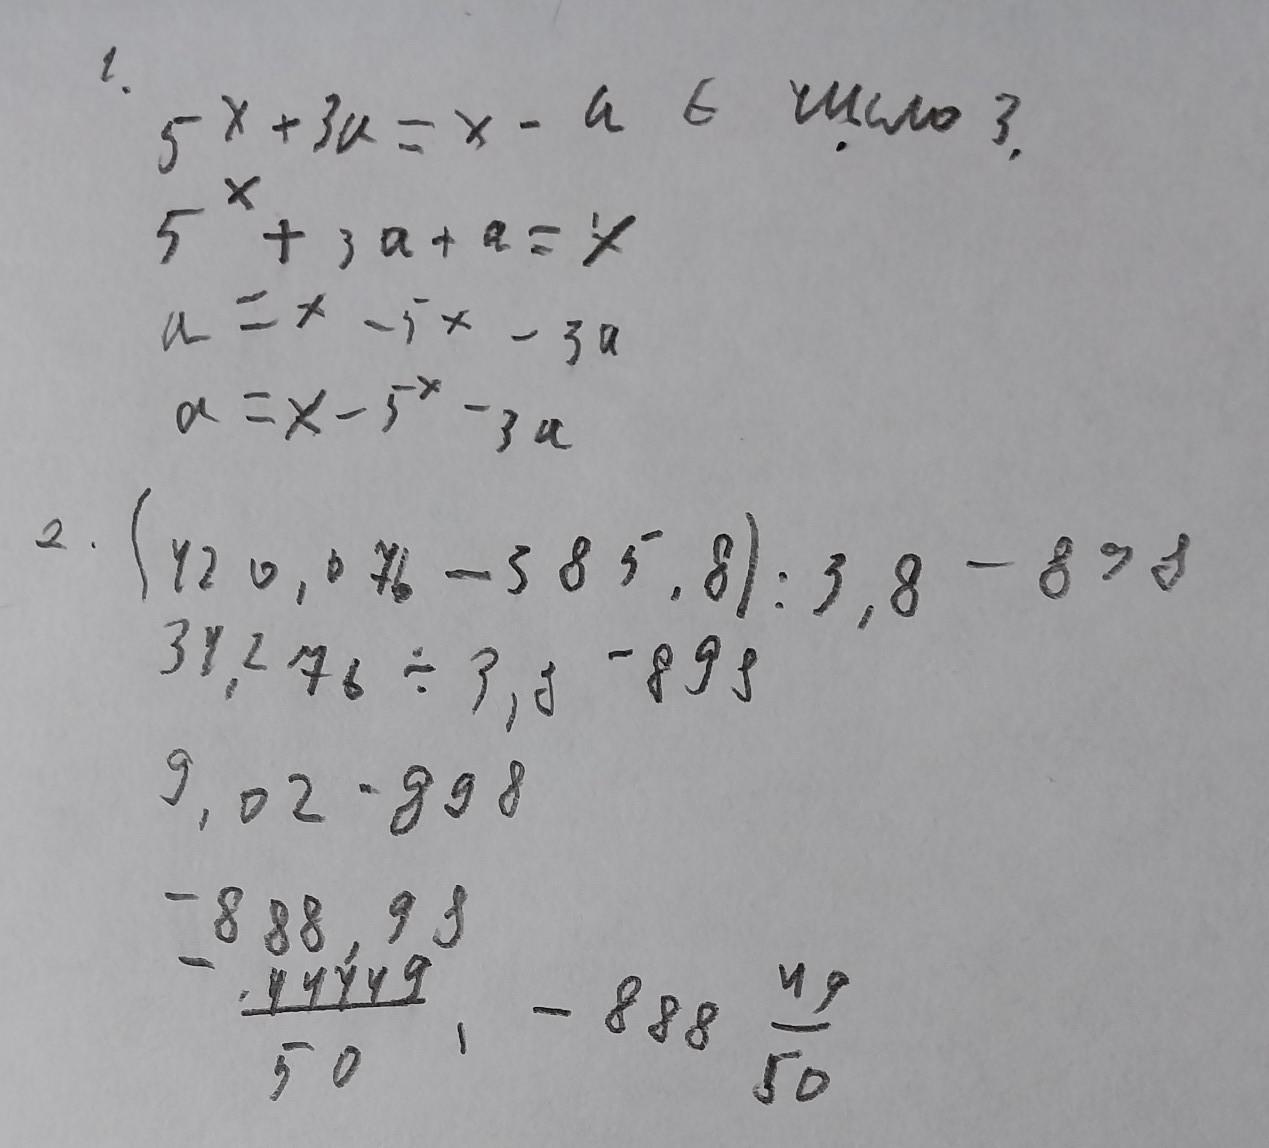 1.
5^x + 3a = x - a є число 3.
5^x + 3a + a = x
a = x - 5^x - 3a
a = x - 5^x - 3a
2. (420,076 - 385,8) : 3,8 - 898
34,276 ÷ 3,8 - 898
9,02 - 898
-888,98
- 44449/50, - 888 49/50